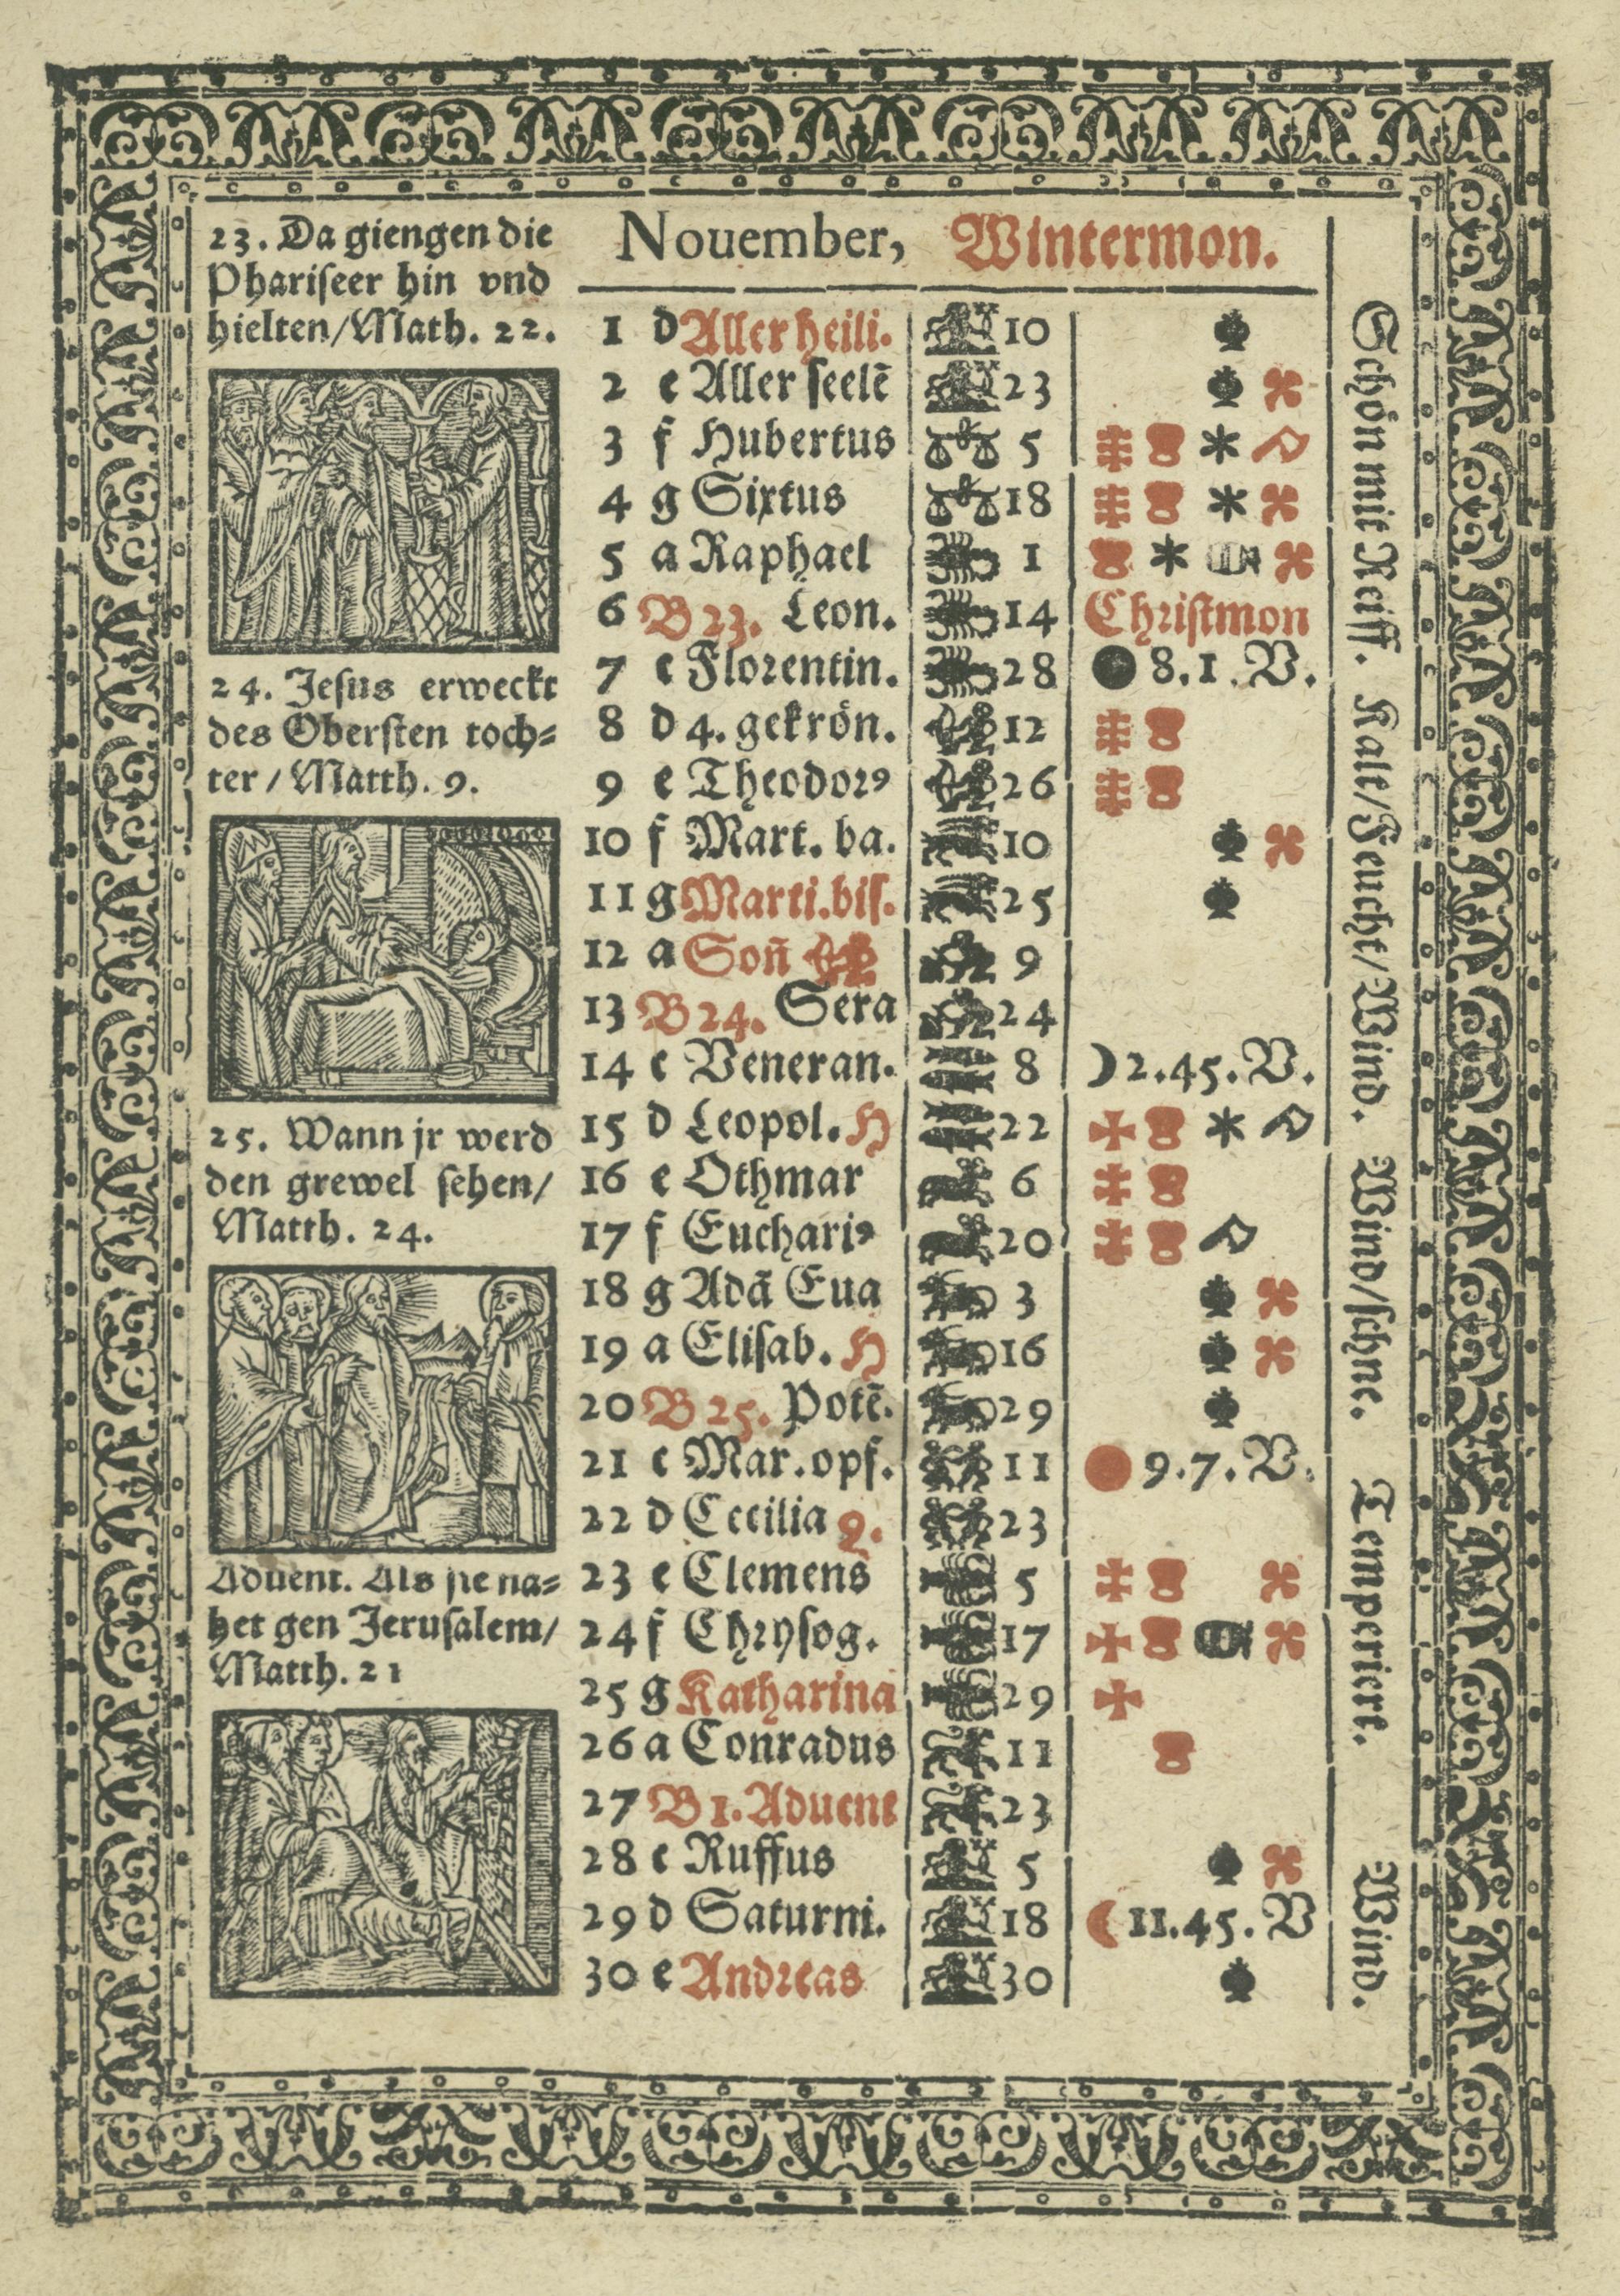 23. Da giengen die
Phariseer hin vnd
hielten/Math. 22.
24. Jesus erweckt
des Obersten toch-
ter / Matth. 9.
25. Wann jr werd
den grewel sehen/
Matth. 24.
Aduent. Als sie na-
het gen Jerusalem/
Matth. 21
Nouember, Wintermon.
1 d Aller heili. 10
2 e Aller seelē 23
3 f Hubertus 5
4 g Sixtus 18
5 a Raphael 1
6 B 23. Leon. 14 Christmon
7 c Florentin. 28 8.1.V.
8 d 4. gekrön. 12
9 e Theodorꝰ 26
10 f Mart. ba. 10
11 g Marti.bis. 25
12 a Son̄ 9
13 B 24. Sera 24
14 c Veneran. 8 2.45.V.
15 d Leopol. H 22
16 e Othmar 6
17 f Euchariꝰ 20
18 g Adā Eua 3
19 a Elisab. H 16
20 B 25. Potē. 29
21 c Mar.opf. 11 9.7.V.
22 d Cecilia 23
23 e Clemens 5
24 f Chrysog. 17
25 g Katharina 29
26 a Conradus 11
27 B 1. Aduent 23
28 c Ruffus 5
29 d Saturni. 18 11.45.V
30 e Andreas 30
Schön mit Reiff. Kalt/Feucht/Wind. Wind/schne. Temperiert. Wind.